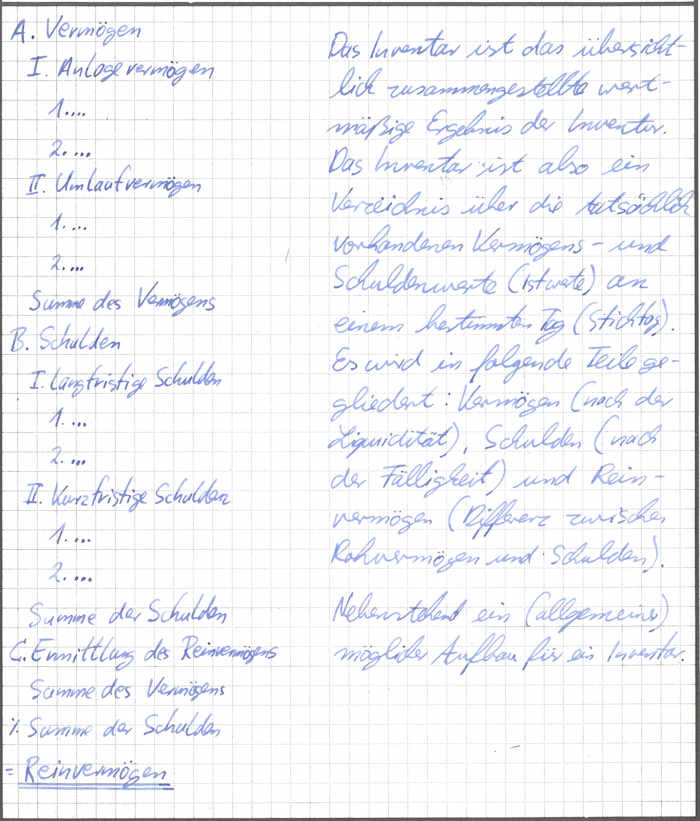 A. Vermögen
I. Anlagevermögen
1....
2. ...
II. Umlaufvermögen
1. ...
2. ...
Summe des Vermögens
B. Schulden
I. Langfristige Schulden
1. ...
2. ...
II. Kurzfristige Schulden
1. ...
2. ...
Summe der Schulden
C. Ermittlung des Reinvermögens
Summe des Vermögens
./. Summe der Schulden
= Reinvermögen
Das Inventar ist das übersicht-
lich zusammengestellte wert-
mäßige Ergebnis der Inventur.
Das Inventar ist also ein
Verzeichnis über die tatsächlich
vorhandenen Vermögens- und
Schuldenwerte (Istwerte) an
einem bestimmten Tag (Stichtag).
Es wird in folgende Teile ge-
gliedert: Vermögen (nach der
Liquidität), Schulden (nach
der Fälligkeit) und Rein-
vermögen (Differenz zwischen
Rohvermögen und Schulden).
Nebenstehend ein (allgemeiner)
möglicher Aufbau für ein Inventar.